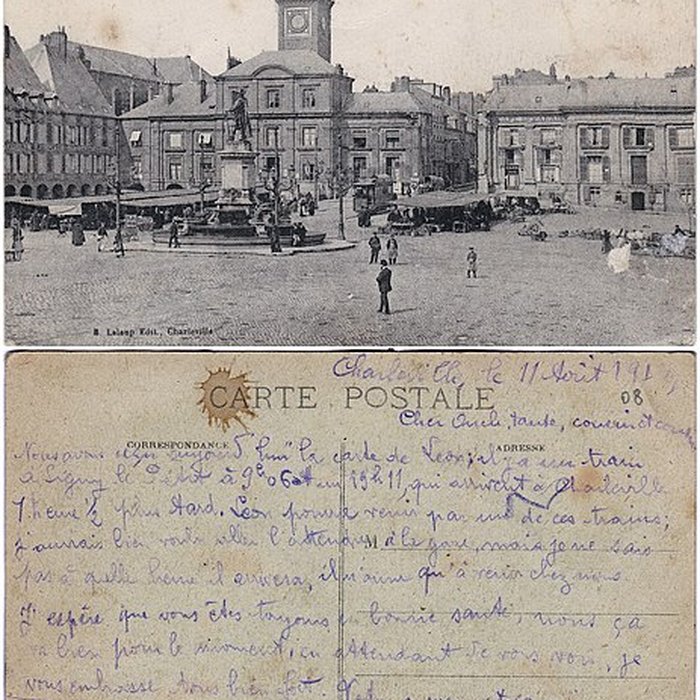 B. Leloup Edit., Charleville
Charleville, le 11 Août 191
CARTE POSTALE
08
Cher Oncle, tante, cousin et
CORRESPONDANCE
ADRESSE
Nous avons aujourd'hui la carte de Léon; il y a un train
à Signy le Petit à 9h 06 et un 19h11, qui arrivent à Charleville
1 heure ½ plus tard. Léon pourra venir par un de ces trains;
j'aurais bien voulu aller l'attendre à la gare, mais je ne sais
M
pas à quelle heure il arrivera, il n'aura qu'à venir chez nous.
J'espère que vous êtes toujours en bonne santé, nous ça
va bien pour le moment, en attendant de vous voir, je
vous embrasse tous bien fort.